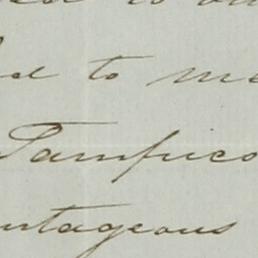 d to me
Tampico
ntageous